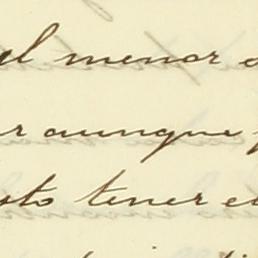 el menor
r aunque
sto tener el